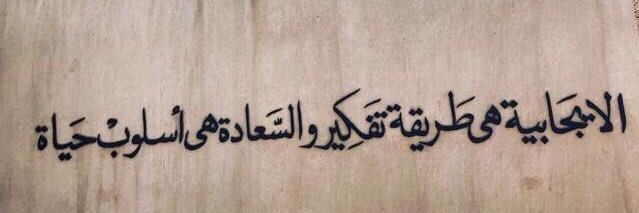 الايجابية هى طَريقة تَفَكِير والسَّعادة هى أسلوبْ حَياة